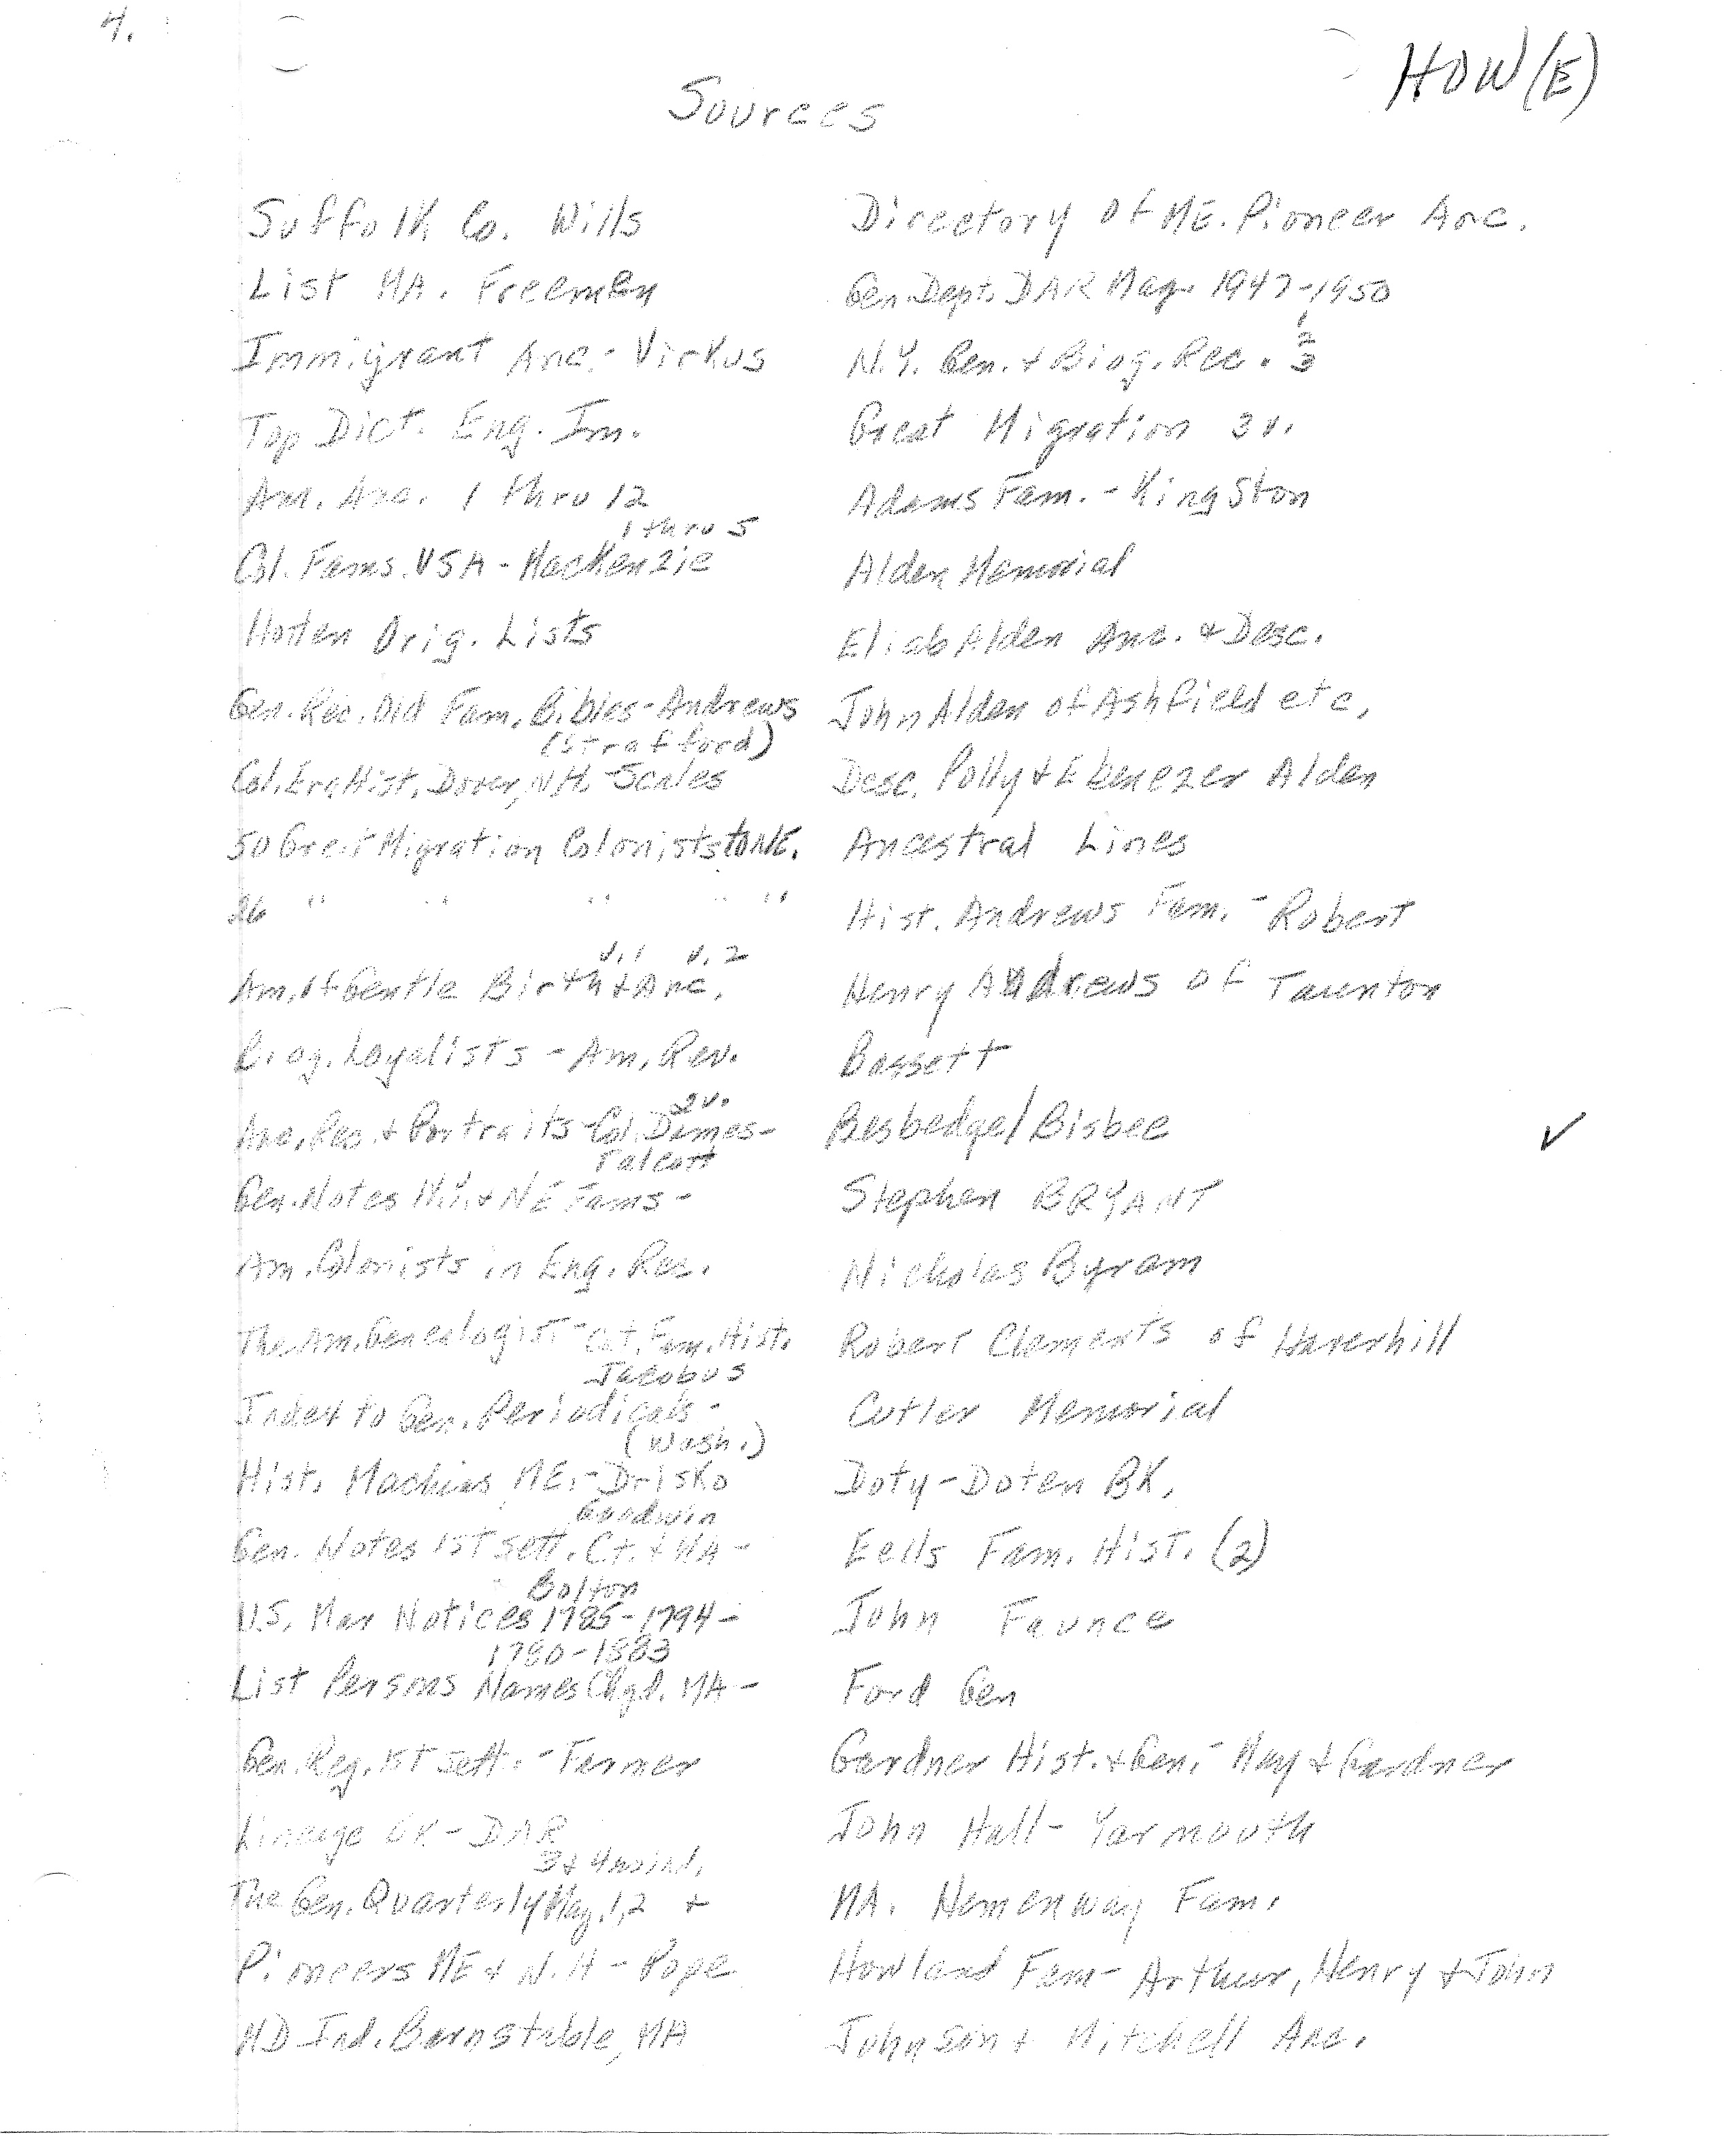 4.
HOW(E)
Sources
Suffolk Co. Wills
List MA. Freemen
Immigrant Anc. - Virkus
Top Dict. Eng. Im.
Am. Anc. 1 thru 12
1 thru 5
Col. Fams. USA - MacKenzie
Hotten Orig. Lists
Gen. Rec. Old Fam. Bibles - Andrews
(Strafford)
Col. Era Hist. Dover, N.H. - Scales
50 Great Migration Colonists to NE.
26 " " " " "
v.1 v.2
Am. of Gentle Birth & Anc.
Biog. Loyalists - Am. Rev.
2v.
Anc. Rec. & Portraits - Col. Dames -
Talcott
Gen. Notes N.Y. & NE Fams -
Am. Colonists in Eng. Rec.
The Am. Genealogist - Ct. Fam. Hist.
Jacobus
Index to Gen. Periodicals -
(Wash.)
Hist. Machias ME. - Drisko
Goodwin
Gen. Notes 1st Sett. Ct. & MA -
Bolton
U.S. Mar Notices 1785-1794 -
1780-1883
List Persons Names Chgd. MA -
Gen. Reg. 1st Sett. - Farmer
Lineage BK - DAR
3 & 4 no ind.
The Gen. Quarterly Mag. 1,2 +
Pioneers ME & N.H - Pope
MD Ind. Barnstable, MA
Directory of ME. Pioneer Anc.
Gen. Dept. DAR Mag. 1947-1950
1
2
N.Y. Gen. & Biog. Rec. 3
Great Migration 3v.
Adams Fam. - Kingston
Alden Memorial
Eliab Alden Anc. & Desc.
John Alden of Ashfield etc.
Desc. Polly & Ebenezer Alden
Ancestral Lines
Hist. Andrews Fam. - Robert
Henry Andrews of Taunton
Bassett
Besbedge/Bisbee ✓
Stephen BRYANT
Nicholas Byram
Robert Clements of Haverhill
Cutler Memorial
Doty-Doten BK.
Eells Fam. Hist. (2)
John Faunce
Ford Gen
Gardner Hist. & Gen. - May & Gardner
John Hall - Yarmouth
MA. Hemenway Fam.
Howland Fam - Arthur, Henry & John
Johnson & Mitchell Anc.